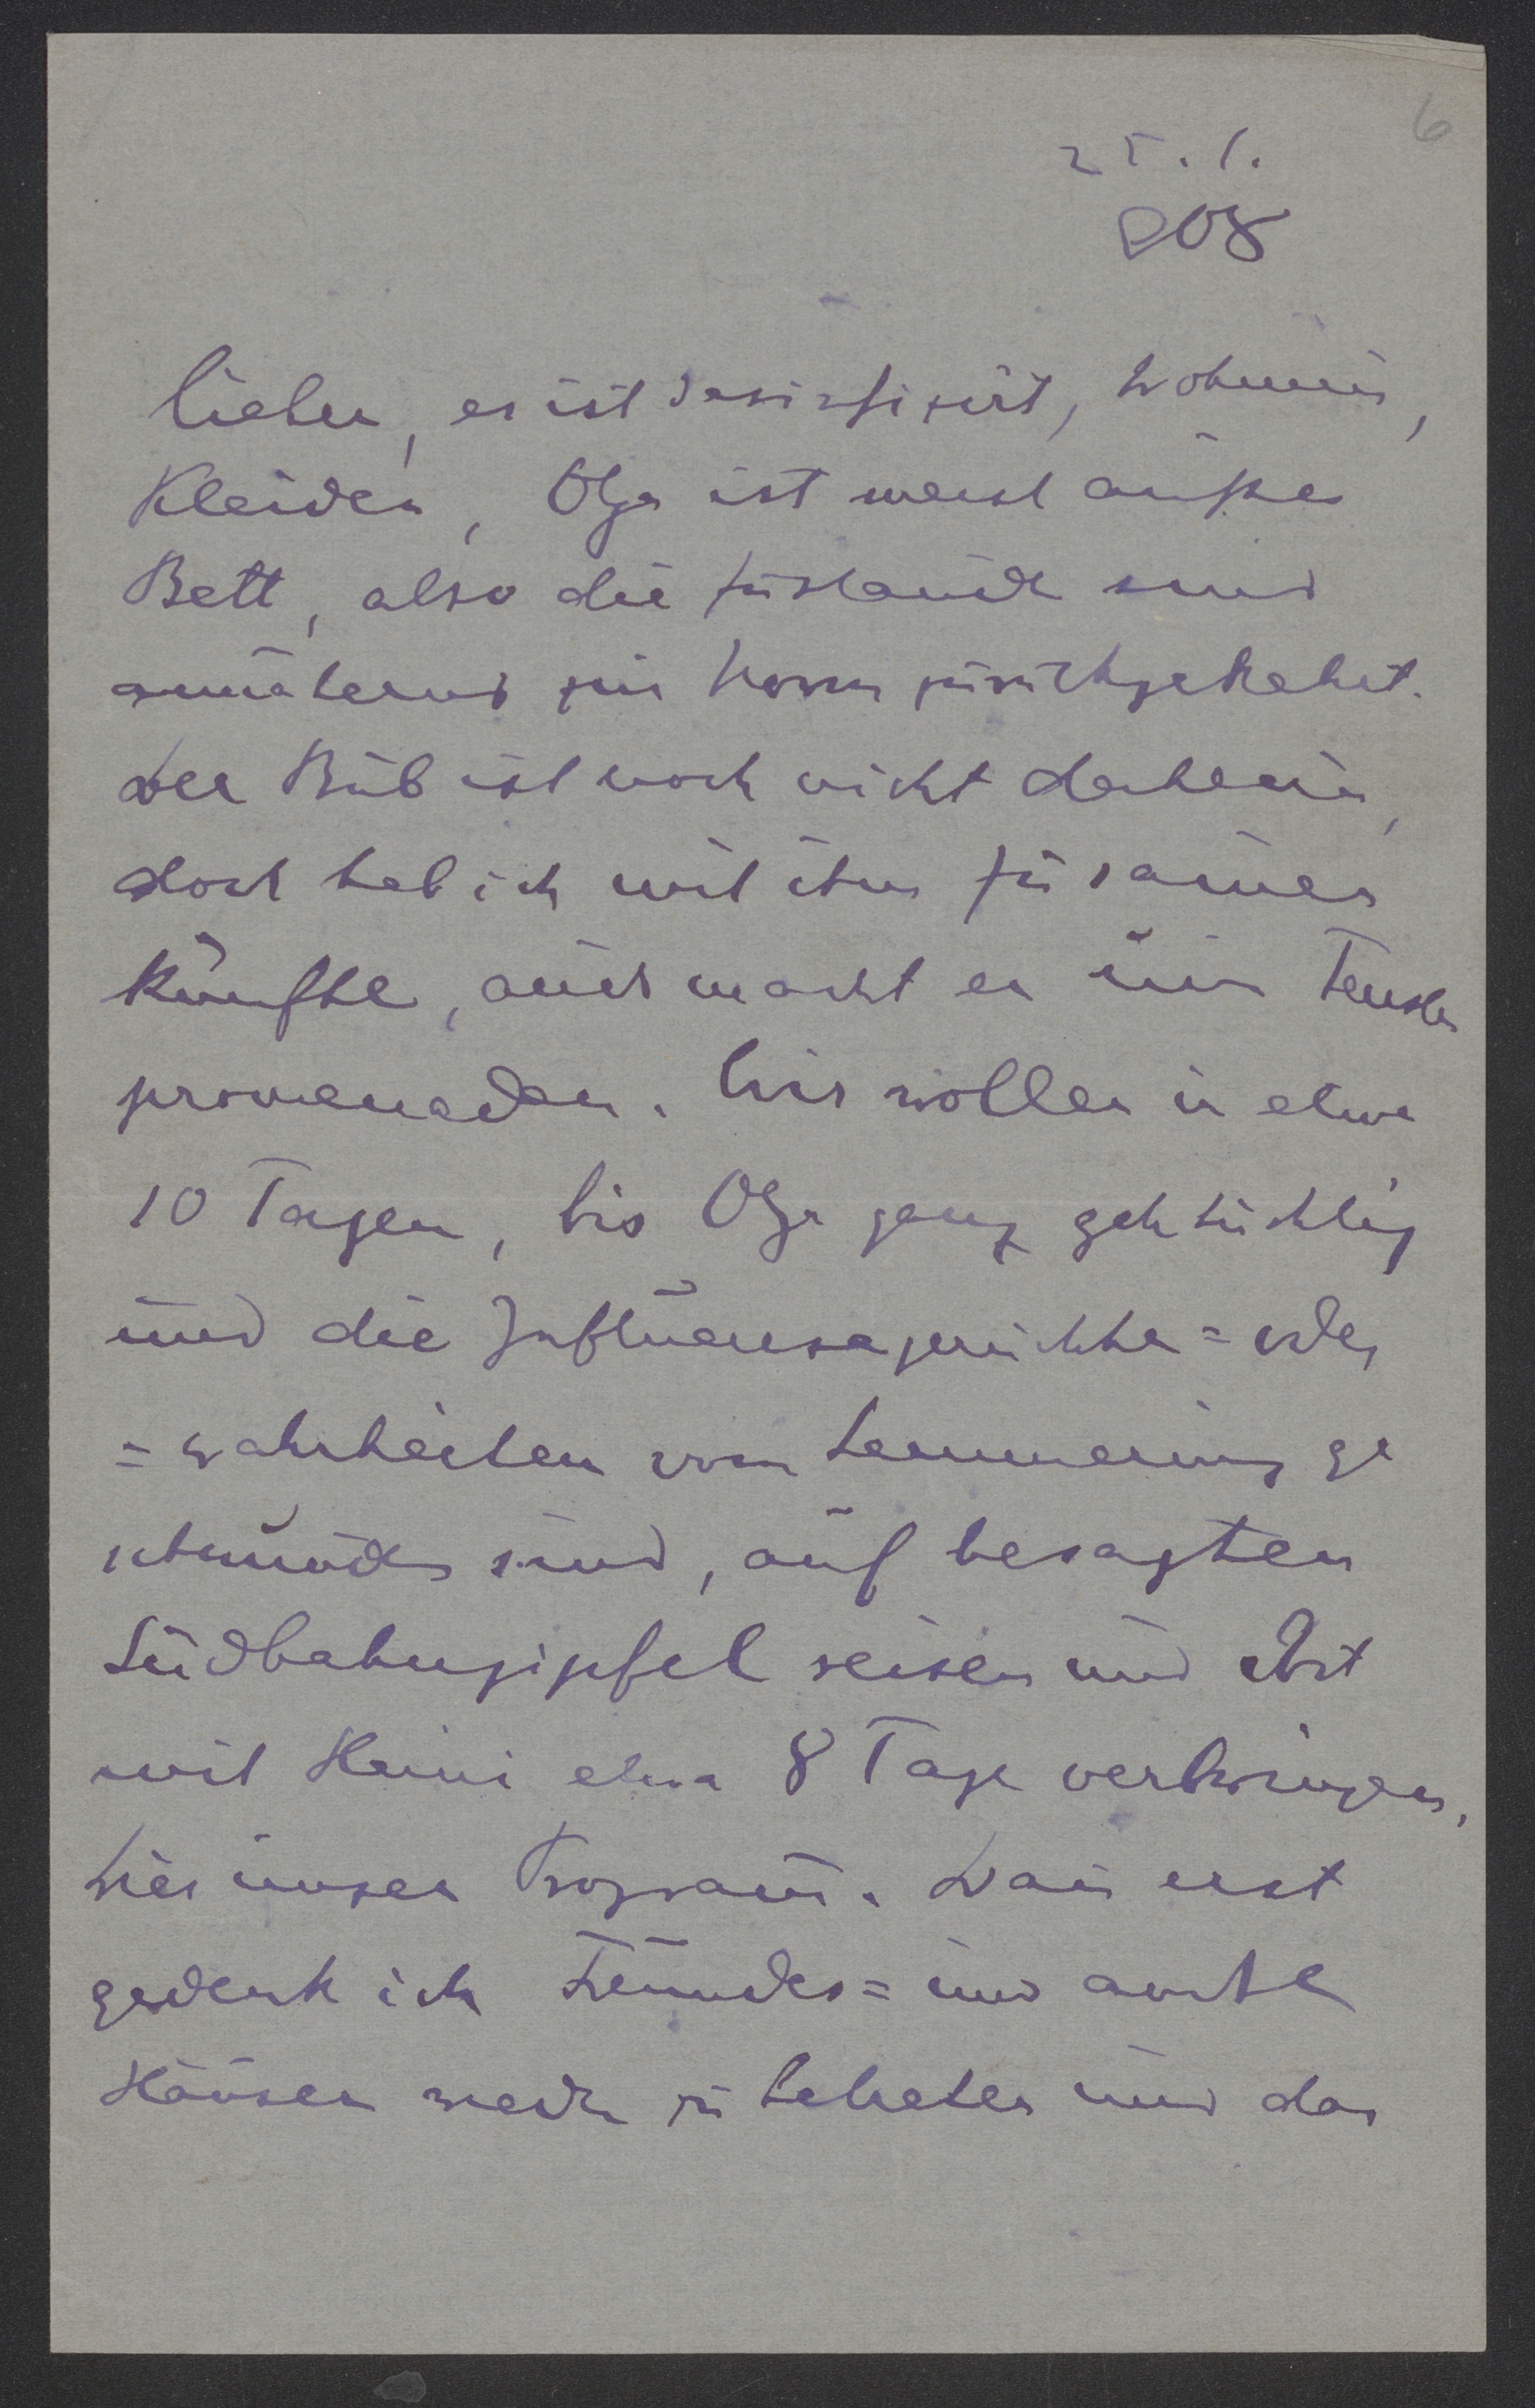 6
25. 1.
908
lieber, es ist desinfizirt, Wohnung,
Kleider, Olga ist meist außer
Bett, also die Zustände sind
annähernd zur Norm zurückgekehrt.
Der Bub ist noch nicht daheim,
doch hab ich mit ihm Zusamen
künfte, auch macht er mir Fenster
promenaden. Wir wollen in etwa
10 Tagen, bis Olga ganz gehtüchtig
und die Influenzagerüchte = oder
= wahrheiten vom Semmering ge
schwunden sind, auf besagten
Südbahngipfel reisen und dort
mit Heini etwa 8 Tage verbringen.
Dies unser Programm. Dann erst
gedenk ich Freundes = und andre
Häuser wieder zu betreten und das